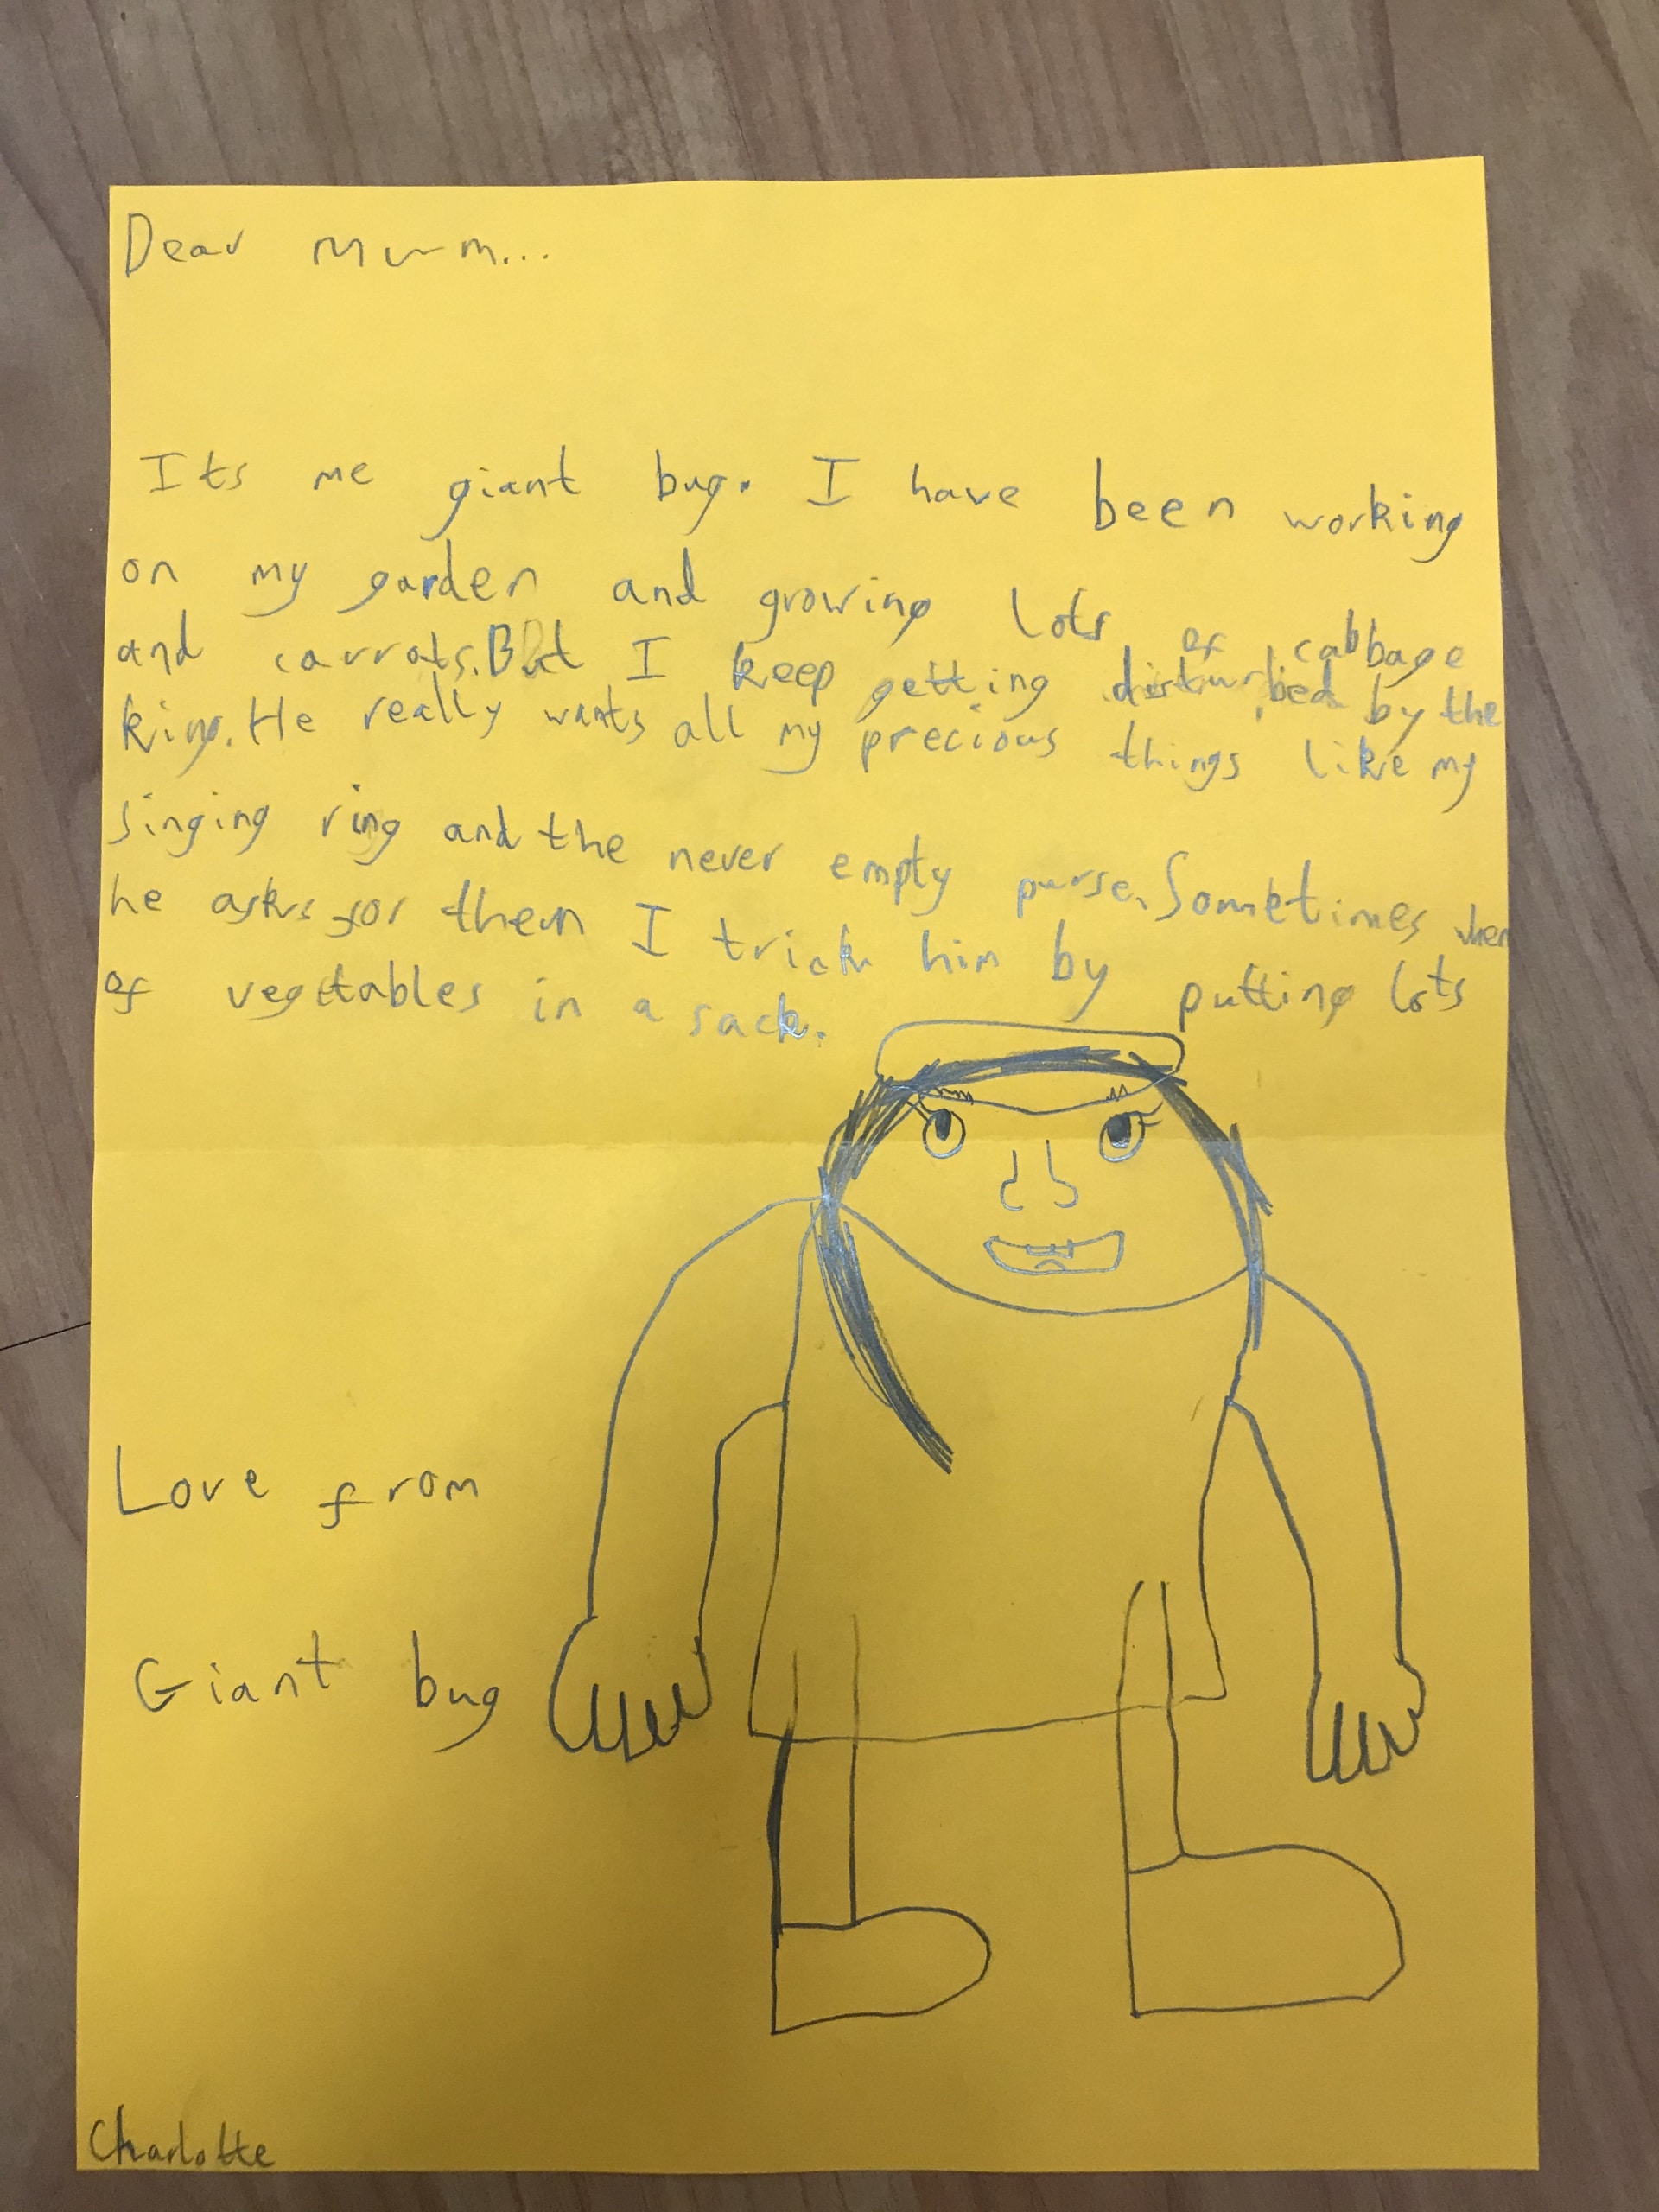 Dear Mum...
Its me giant bug. I have been working
on my garden and growing lots of cabbage
and carrots. But I keep getting disturbed by the
king. He really wants all my precious things like my
singing ring and the never empty purse. Sometimes when
he asks for them I trick him by putting lots
of vegetables in a sack.
Love from
Giant bug
Charlotte